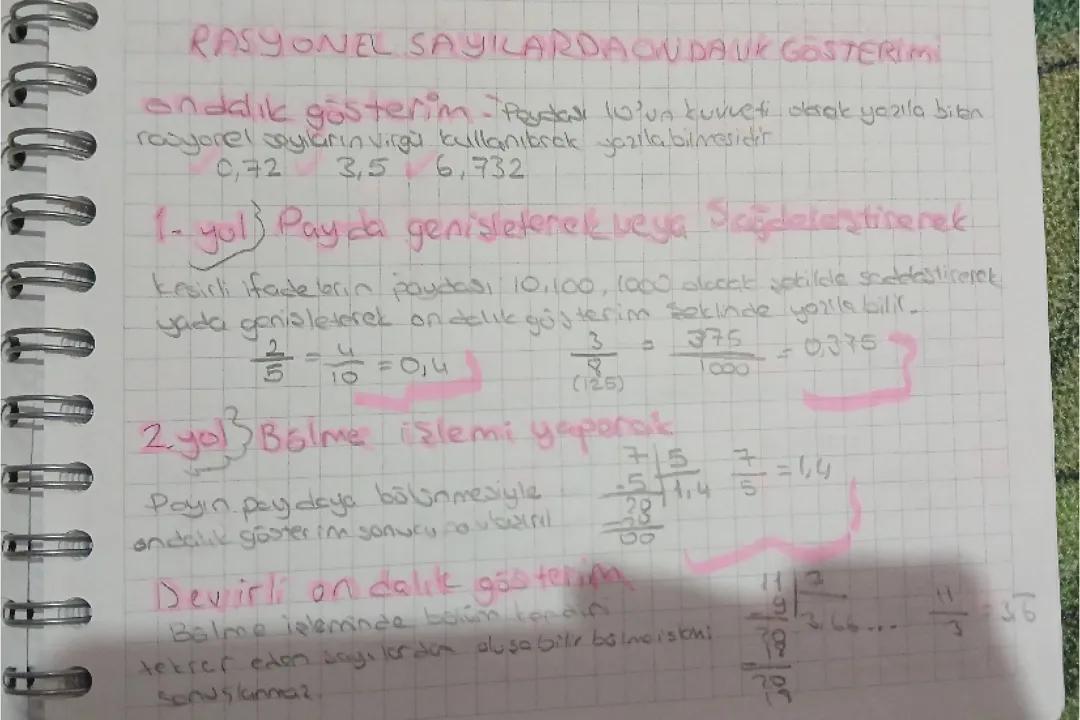 RASYONEL SAYILARDA ONDALIK GÖSTERİMİ
ondalık gösterim - Paydası 10'un kuvveti olarak yazıla bilen
rasyonel sayıların virgül kullanılarak yazıla bilmesidir
0,72 3,5 6,732
1- yol} Payda genişleterek veya Sadeleştirerek
Kesirli ifadelerin paydası 10,100,1000 olacak şekilde sadeleştirerek
yada genişleterek ondalık gösterim şeklinde yazıla bilir.
2/5 = 4/10 = 0,4 3/8 = 375/1000 = 0,375
(125)
2.yol} Bölme işlemi yaparak
7 | 5 7/5 = 1,4
Payın paydaya bölünmesiyle - 5 1,4
ondalık gösterim sonucu 20
20
00
Devirli on dalık gösterim
11 | 3 11/3 =
Bölme işleminde bölüm - 9 3,66...
tekrar eden sayılardan oluşabilir bölme işlemi
sonuçlanmaz.